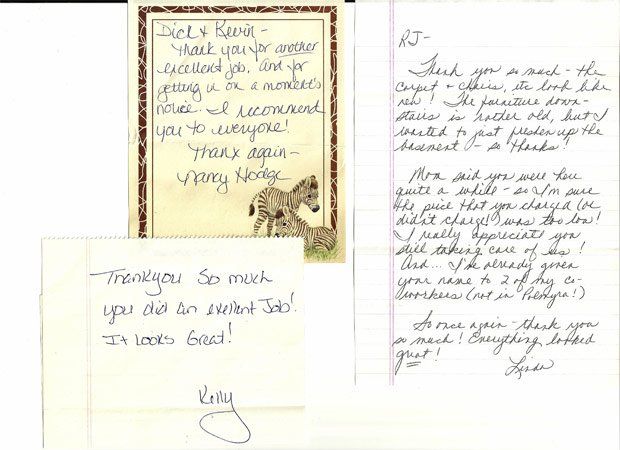 Dick & Kevin -
Thank you for another
excellent job. And for
getting us on a moment's
notice. I recommend
you to everyone!
Thanx again -
Nancy Hodge
Thankyou So much
you did An exellent Job!
It Looks Great!
Kelly
RJ -
Thank you so much - the
carpet & chairs, etc look like
new! The furniture down-
stairs is rather old, but I
wanted to just freshen up the
basement - so thanks!
Mom said you were here
quite a while - so I'm sure
the price that you charged (or
didn't charge!) was too low!
I really appreciate you
still taking care of us!
And... I've already given
your name to 2 of my co-
workers (not in Palmyra!)
So once again - thank you
so much! Everything looked
great!
Linda